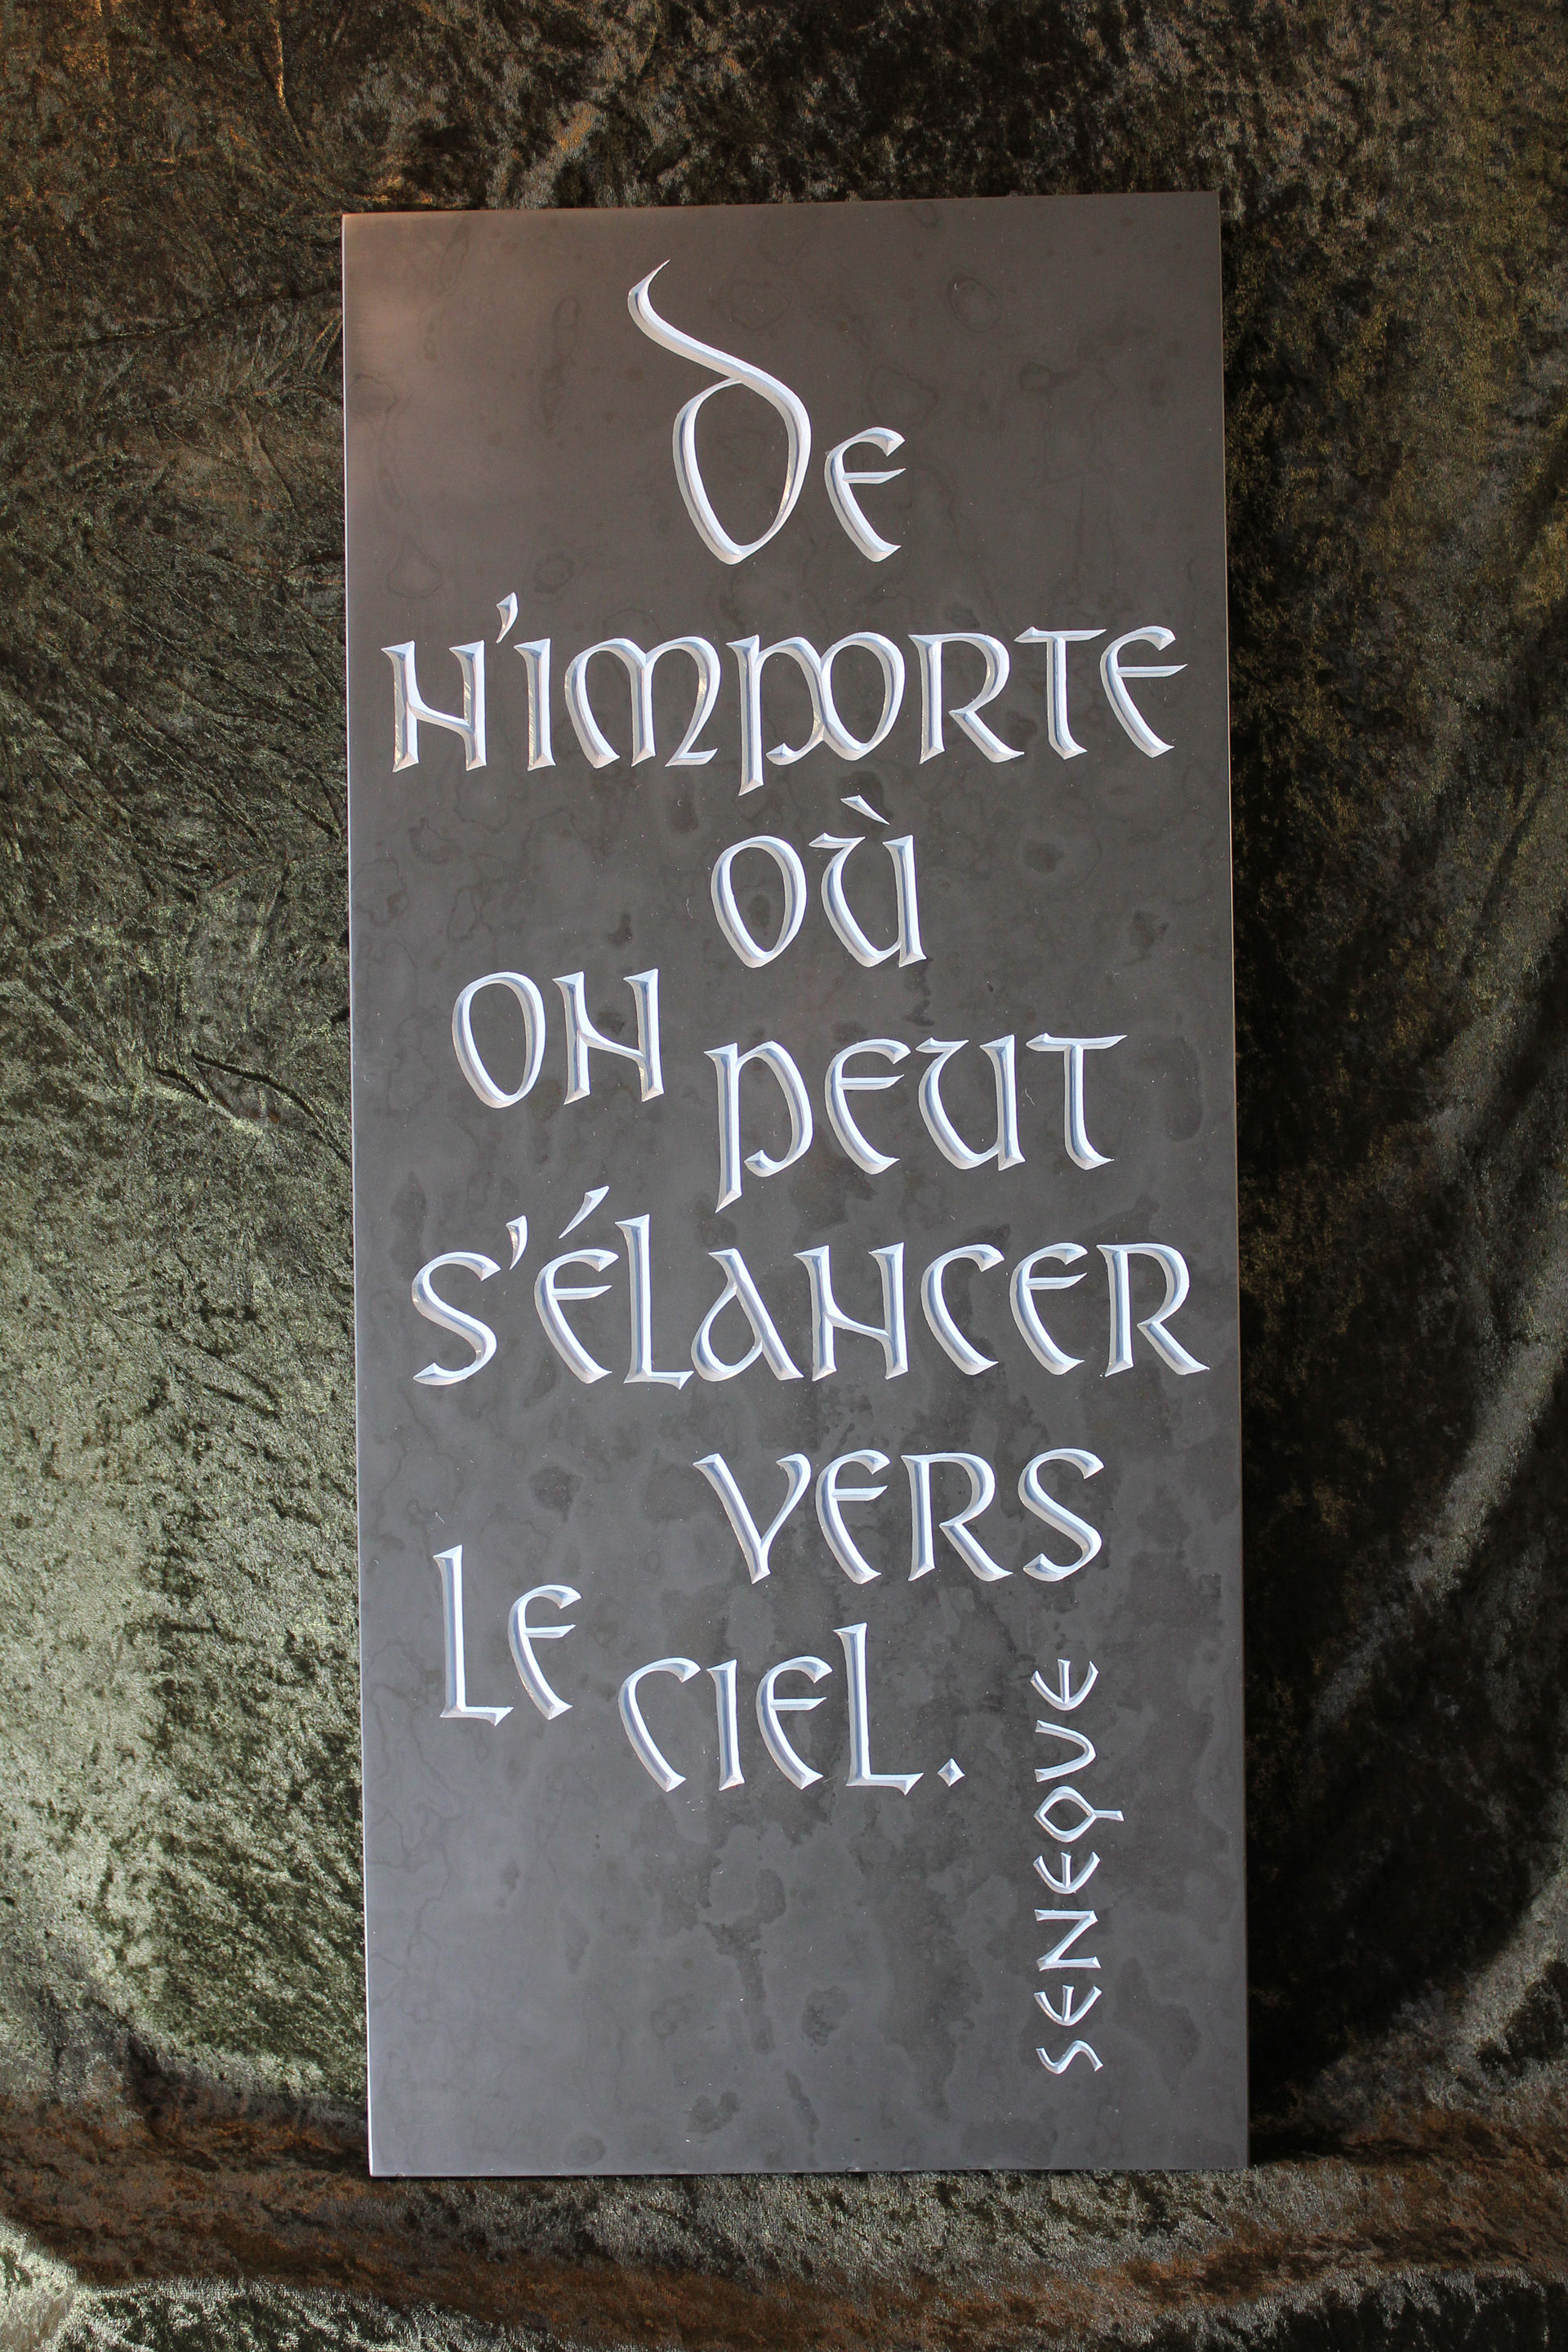 De
n'importe
où
on peut
s'élancer
vers
le ciel.
SENEQUE